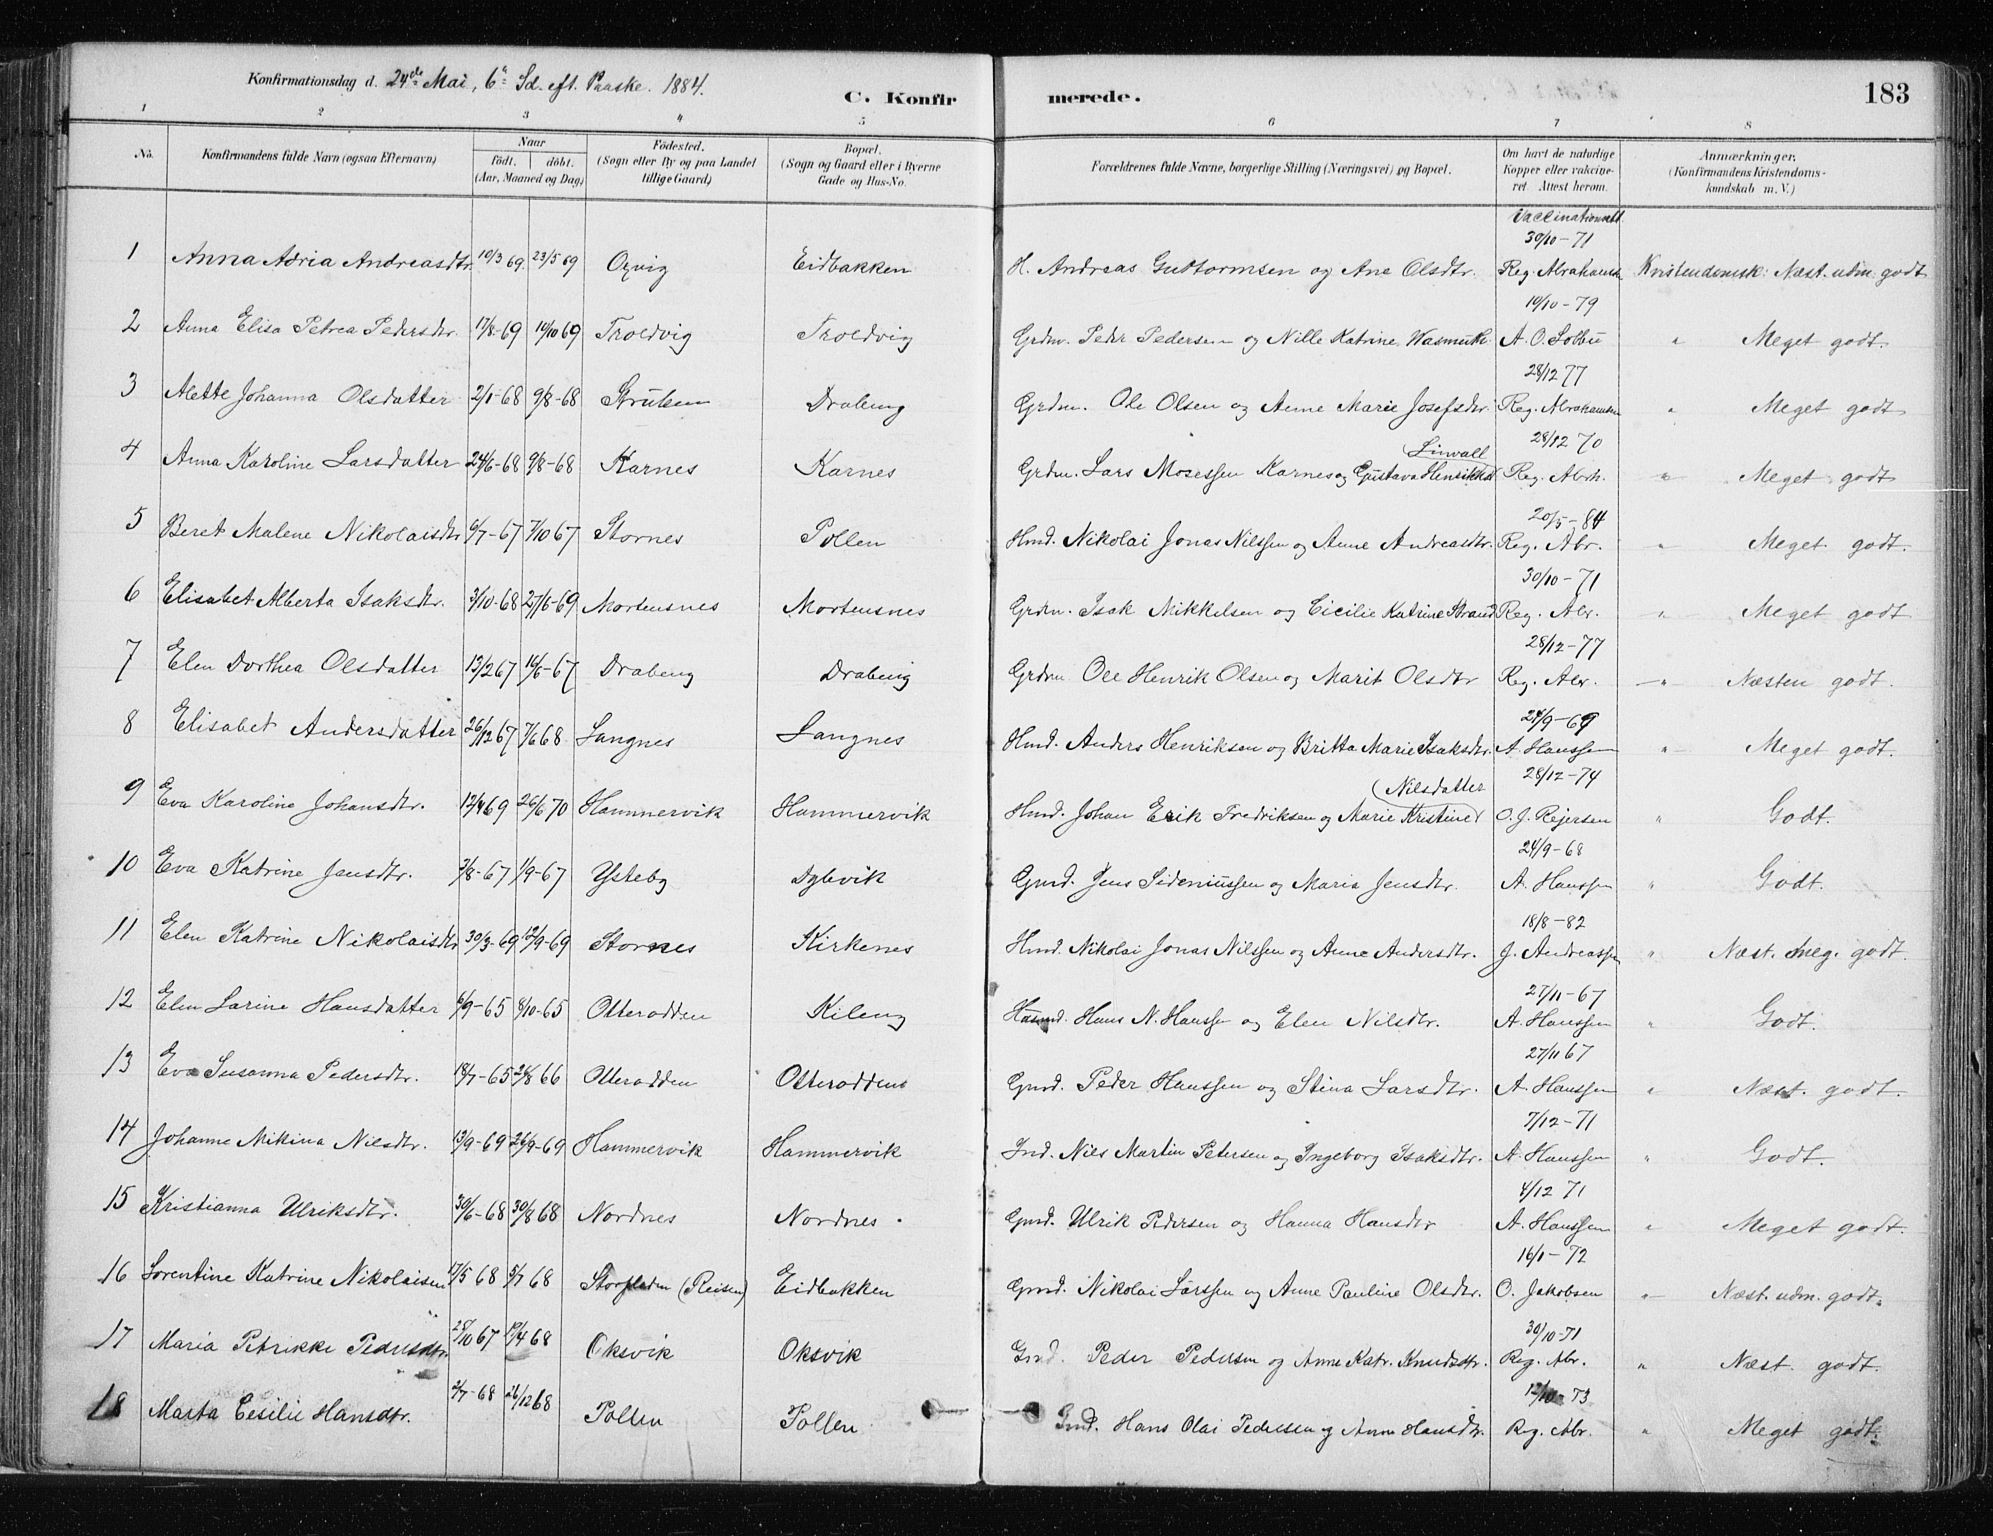 Konfirmationsdag d. 24de Mai, 6te Sd. eft. Paaske. 1884.
C. Konfirmerede.
183
1 2 3 4 5 6 7 8
No. Konfirmandens fulde Navn (ogsaa Efternavn) Naar födt. döbt. (Aar, Maaned og Dag) Födested. (Sogn eller By og paa Landet tillige Gaard) Bopæl. (Sogn og Gaard eller i Byerne Gade og Hus-No. Forældrenes fulde Navne, borgerlige Stilling (Næringsvei) og Bopæl. Om havt de naturlige Kopper eller vakcineret Attest herom. Anmærkninger. (Konfirmandens Kristendomskundskab m. V.)
1 Anna Adria Andreasdtr. 10/3 69. 23/5 69 Oxvig Eidbakken H. Andreas Guttormsen og Ane Olsdtr. Vaccinationsatt 30/10-71 Reg. Abrahamsen Kristendomsk: Næst. udm. godt
2 Anna Elisa Petrea Pedersdtr. 17/8-69 10/10 69 Troldvig Troldvig Grdm. Peder Pedersen og Nille Katrine Wasmuth 10/10-79 A. O. Solbu " Meget godt.
3 Alette Johanna Olsdatter 2/1-68 9/8-68 Strüben Drabeng Grdm. Ole Olsen og Anne Marie Josefsdtr. 28/12 77 Reg. Abrahamsen " Meget godt
4 Anna Karoline Larsdatter 24/6-68 9/8-68 Karnes Karnes Grdm. Lars Mosessen Karnes og Gustava Henrikke (Linvall 28/12 70 Reg. Abrh. " Meget godt
5 Beret Malene Nikolaisdtr 6/7-67 7/10 67 Stornes Pollen Hmd. Nikolai Jonas Nilssen og Anne Andreasdtr. 20/5-84 Reg. Abr. " Meget godt.
6 Elisabet Alberta Isaksdtr. 3/10-68 27/6-69 Mortensnes Mortensnes Grdm. Isak Mikkelsen og Cicilie Katrine Strand 30/10-71 Reg. Abr. " Meget godt
7 Elen Dorthea Olsdatter 13/2 67 16/6-67 Drabeng Drabeng Grdm Ole Henrik Olsen og Marit Olsdtr 28/12-77 Reg. Abr. " Næsten godt.
8 Elisabet Andersdatter 26/12 67 7/6 68 Langnes Langnes Hmd. Anders Henriksen og Britta Marie Isaksdtr. 24/9-69 A. Hanssen " Meget godt.
9 Eva Karoline Johansdtr. 12/4 69 26/6 70 Hammervik Hammervik Hmd. Johan Erik Fredriksen og Marie Kristine (Nilsdatter 28/12-74 O. J. Rejersen " Godt.
10 Eva Katrine Jensdtr. 3/8-67 1/9-67 Ysteby Dybvik Gmd. Jens Sideniussen og Maria Jensdtr. 24/9-68 A. Hanssen " Godt.
11 Elen Katrine Nikolaisdtr 30/3-69 12/9-69 Stornes Kirkenes Hmd. Nikolai Jonas Nilssen og Anne Andersdtr. 18/8-82 J. Andreassen " Næst. meg. godt.
12 Elen Larine Hansdatter 6/9-65 8/10-65 Otterodden Kileng Husmd. Hans N. Hanssen og Elen Nilsdtr. 27/11-67 A. Hanssen " Godt.
13 Eva Susanna Pedersdtr. 18/7-65 26/8 66 Otterodden Otterodden Gmd. Peder Hanssen og Stina Larsdtr. 27/11 67 A. Hanssen " Næst. godt.
14 Johanne Mikina Nilsdtr. 13/9-69 26/9-69 Hammervik Hammervik Ind. Nils Martin Petersen og Ingeborg Isaksdtr. 7/12-71 A. Hanssen " Godt.
15 Kristianna Ulriksdtr. 30/6-68 30/8 68 Nordnes Nordnes. Gmd. Ulrik Pedersen og Hanna Hansdtr 4/12 71 A. Hanssen " Meget godt.
16 Lorentine Katrine Nikolaisen 17/5 68 5/7 68 (Reisen) Eidbakken Gmd. Nikolai Larssen og Anne Pauline Olsdtr. 16/1-72 O. Jakobsen " Næst. udm. godt.
17 Maria Petrikke Pedersdtr. 28/10 67 19/4 68 Oksvik Oksvik Gmd. Peder Pedersen og Anne Katr. Knudsdtr. 30/10-71 Reg. Abr. " Næst. godt.
18 Marta Cesilie Hansdtr. 2/7-68 26/12 68 Pollen Pollen Gmd. Hans Olai Pedersen og Anne Hansdtr. 12/10-73 Reg. Abr. " Meget godt.